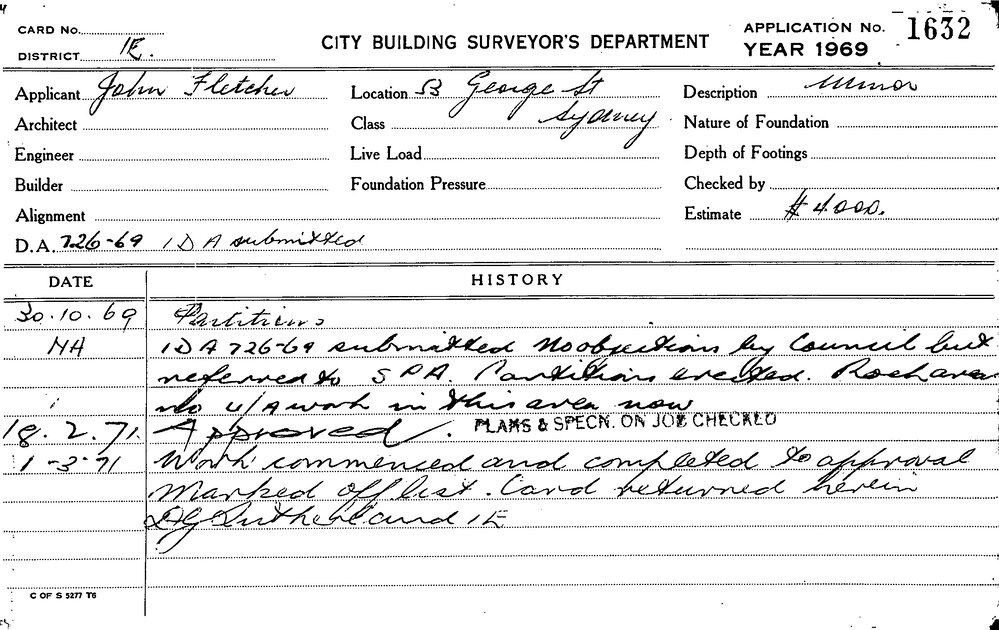 CARD No.
DISTRICT 1E.
CITY BUILDING SURVEYOR'S DEPARTMENT
APPLICATION No. 1632
YEAR 1969
Applicant John Fletcher
Location 53 George St
Sydney
Description Minor
Architect
Class
Nature of Foundation
Engineer
Live Load
Depth of Footings
Builder
Foundation Pressure
Checked by
Alignment
Estimate $4.000.
D.A. 726-69 IDA submitted
DATE HISTORY
30.10.69 Partitions
NA IDA 726-69 submitted No objections by Council but
referred to S P A. Partitions erected. Rock area
no U/A work in this area now
18.2.71. Approved. PLANS & SPECN. ON JOB CHECKED
1-3-71 Work commenced and completed to approval
Marked off list. Card returned herein
DG Sutherland 1E
C OF S 5277 T6